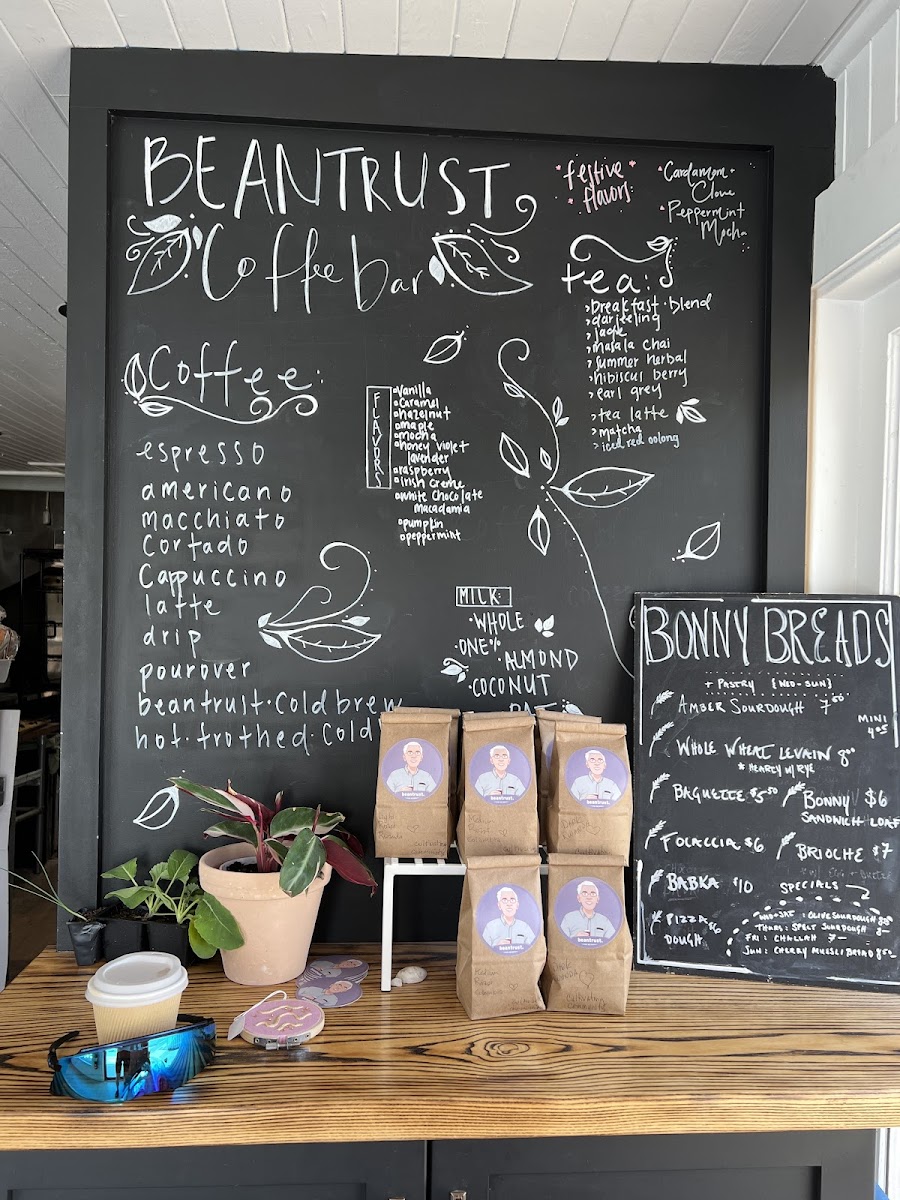 BEANTRUST
Coffee bar
festive
flavors
Cardamom
Clove
Peppermint
Mocha
Coffee:
espresso
americano
macchiato
cortado
cappuccino
latte
drip
pourover
beantrust·cold brew
hot·frothed·cold
FLAVORS
vanilla
caramel
hazelnut
maple
mocha
honey violet
lavender
raspberry
irish creme
white chocolate
macadamia
pumpkin
peppermint
tea:
breakfast·blend
darjeeling
jade
masala chai
summer herbal
hibiscus berry
earl grey
tea latte
matcha
iced red oolong
MILK:
·WHOLE
·ONE%
·ALMOND
·COCONUT
BONNY BREADS
+ PASTRY {WED-SUN}
AMBER SOURDOUGH 7.00
MINI
WHOLE WHEAT LEVAIN 8.00
* HEARTY W/ RYE
BAGUETTE $5.50
BONNY $6
SANDWICH LOAF
FOCACCIA $6
BRIOCHE $7
BABKA $10
SPECIALS
PIZZA $6
DOUGH
WED+SAT: OLIVE SOURDOUGH
THURS: SPELT SOURDOUGH
FRI: CHALLAH 7-
SUN: CHERRY MUESLI BREAD 8.50
beantrust.
beantrust.
beantrust.
beantrust.
beantrust.